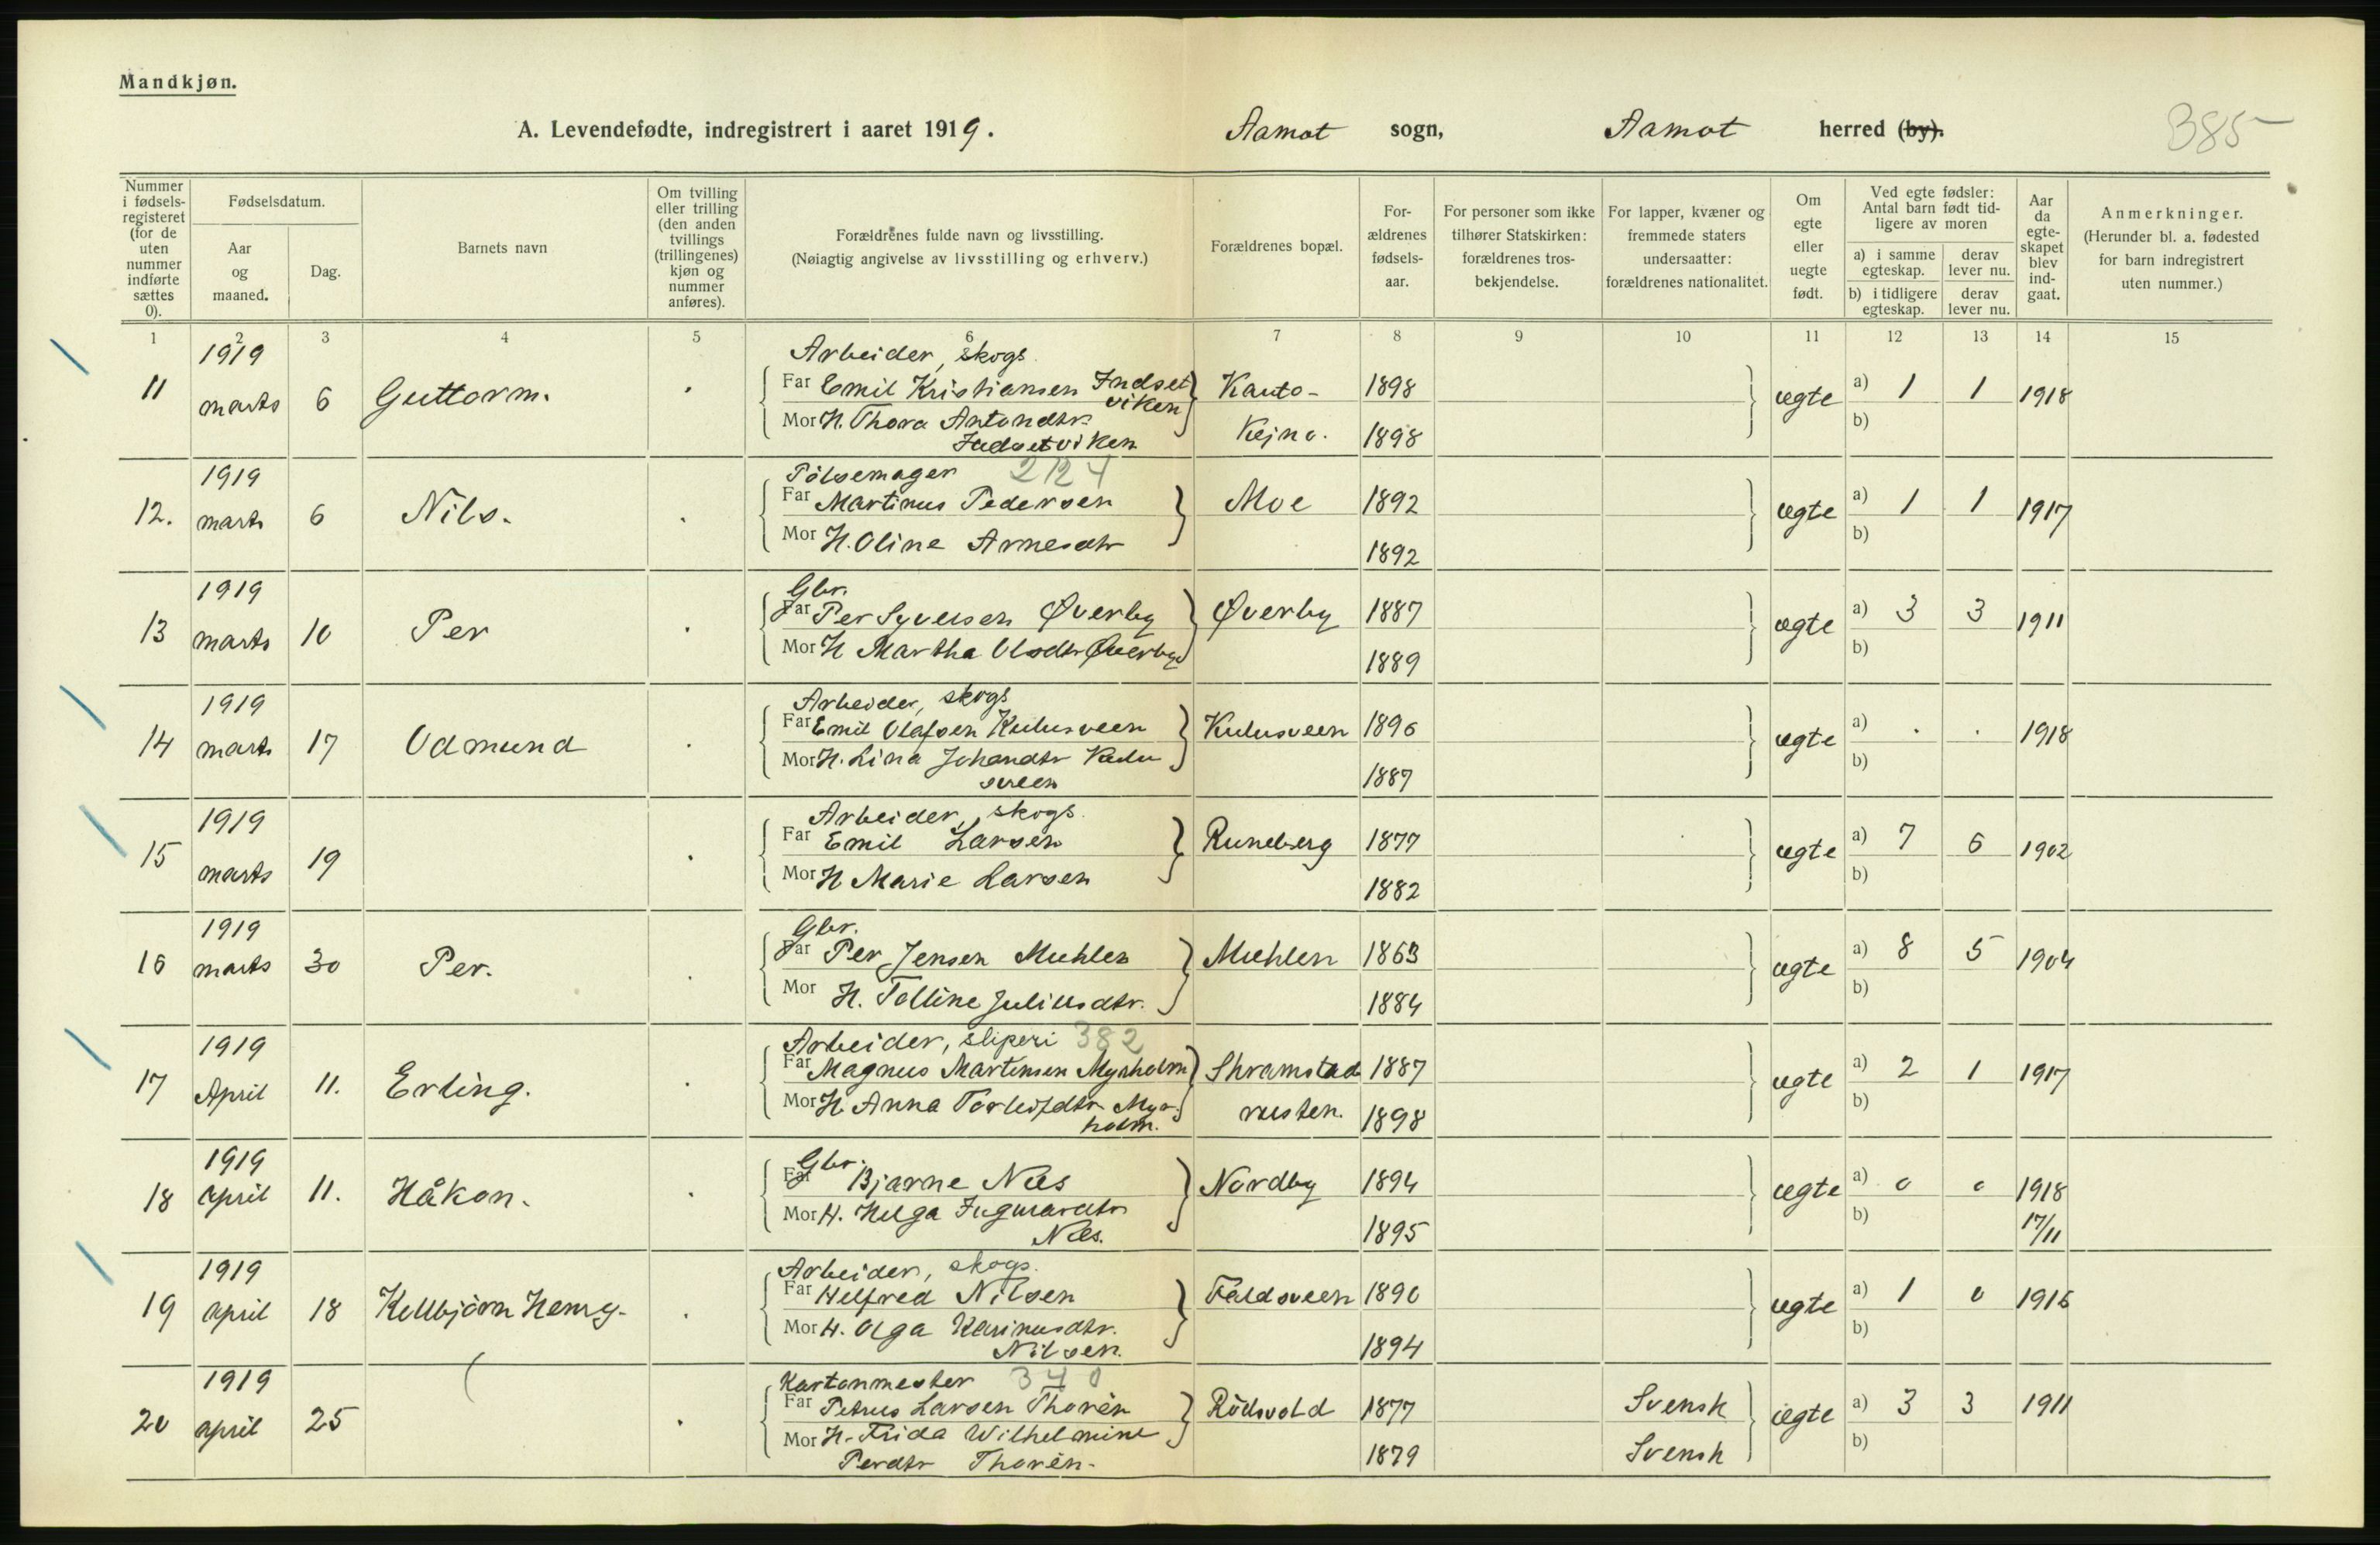 Mandkjøn.
A. Levendefødte, indregistrert i aaret 1919. Aamot sogn, Aamot herred (by). 385
Nummer i fødsels-registeret (for de uten nummer indførte sættes 0).
Fødselsdatum.
Aar og maaned.
Dag.
Barnets navn
Om tvilling eller trilling (den anden tvillings (trillingenes) kjøn og nummer anføres).
Forældrenes fulde navn og livsstilling.
(Nøiagtig angivelse av livsstilling og erhverv.)
Forældrenes bopæl.
For-ældrenes fødsels-aar.
For personer som ikke tilhører Statskirken: forældrenes tros-bekjendelse.
For lapper, kvæner og fremmede staters undersaatter: forældrenes nationalitet.
Om egte eller uegte født.
Ved egte fødsler: Antal barn født tid-ligere av moren
a) i samme egteskap.
derav lever nu.
b) i tidligere egteskap.
derav lever nu.
Aar da egte-skapet blev ind-gaat.
Anmerkninger.
(Herunder bl. a. fødested for barn indregistrert uten nummer.)
1 2 3 4 5 6 7 8 9 10 11 12 13 14 15
1919 Arbeider, skogs.
11 marts 6 Guttorm. Far Emil Kristiansen Indset viken Kauto- 1898 ægte a) 1 1 1918
Mor H. Thora Antondtr. Kejno. 1898 b)
Indsetviken
1919 Pölsemager 2124
12. marts 6 Nils. Far Martinus Pedersen Moe 1892 ægte a) 1 1 1917
Mor H. Oline Arnesdtr 1892 b)
1919 Gbr.
13 marts 10 Per Far Per Syversen Øverby Øverby 1887 ægte a) 3 3 1911
Mor H Martha Olsdtr Øverby 1889 b)
1919 Arbeider, skogs
14 marts 17 Odmund Far Emil Olafsen Kulusveen Kulusveen 1896 ægte a) . . 1918
Mor H. Lina Johandtr Kulu 1887 b)
sveen
1919 Arbeider, skogs.
15 marts 19 Far Emil Larsen Runeberg 1877 ægte a) 7 6 1902
Mor H Marie Larsen 1882 b)
1919 Gbr.
16 marts 30 Per. Far Per Jensen Muhlen Muhlen 1863 ægte a) 8 5 1904
Mor H. Tolline Juliusdtr. 1884 b)
1919 Arbeider, sliperi 382
17 April 11. Erling. Far Magnus Martinsen Myrholm Skramstad 1887 ægte a) 2 1 1917
Mor H Anna Torleifdtr Myr- rusten. 1898 b)
holm.
1919 Gbr.
18 April 11. Håkon. Far Bjarne Næs Nordby 1894 ægte a) 0 0 1918
Mor H. Helga Ingvardtr 1895 b) 17/11
Næs.
1919 Arbeider, skogs.
19 april 18 Kolbjörn Henry. Far Helfred Nilsen Faldsveen 1890 ægte a) 1 0 1916
Mor H. Olga Karinusdtr. 1894 b)
Nilsen.
1919 Kartonmester 340
20 april 25 Far Petrus Larsen Thorèn Rödsvold 1877 Svensk ægte a) 3 3 1911
Mor H. Frida Wilhelmine 1879 Svensk b)
Perdtr Thorèn.